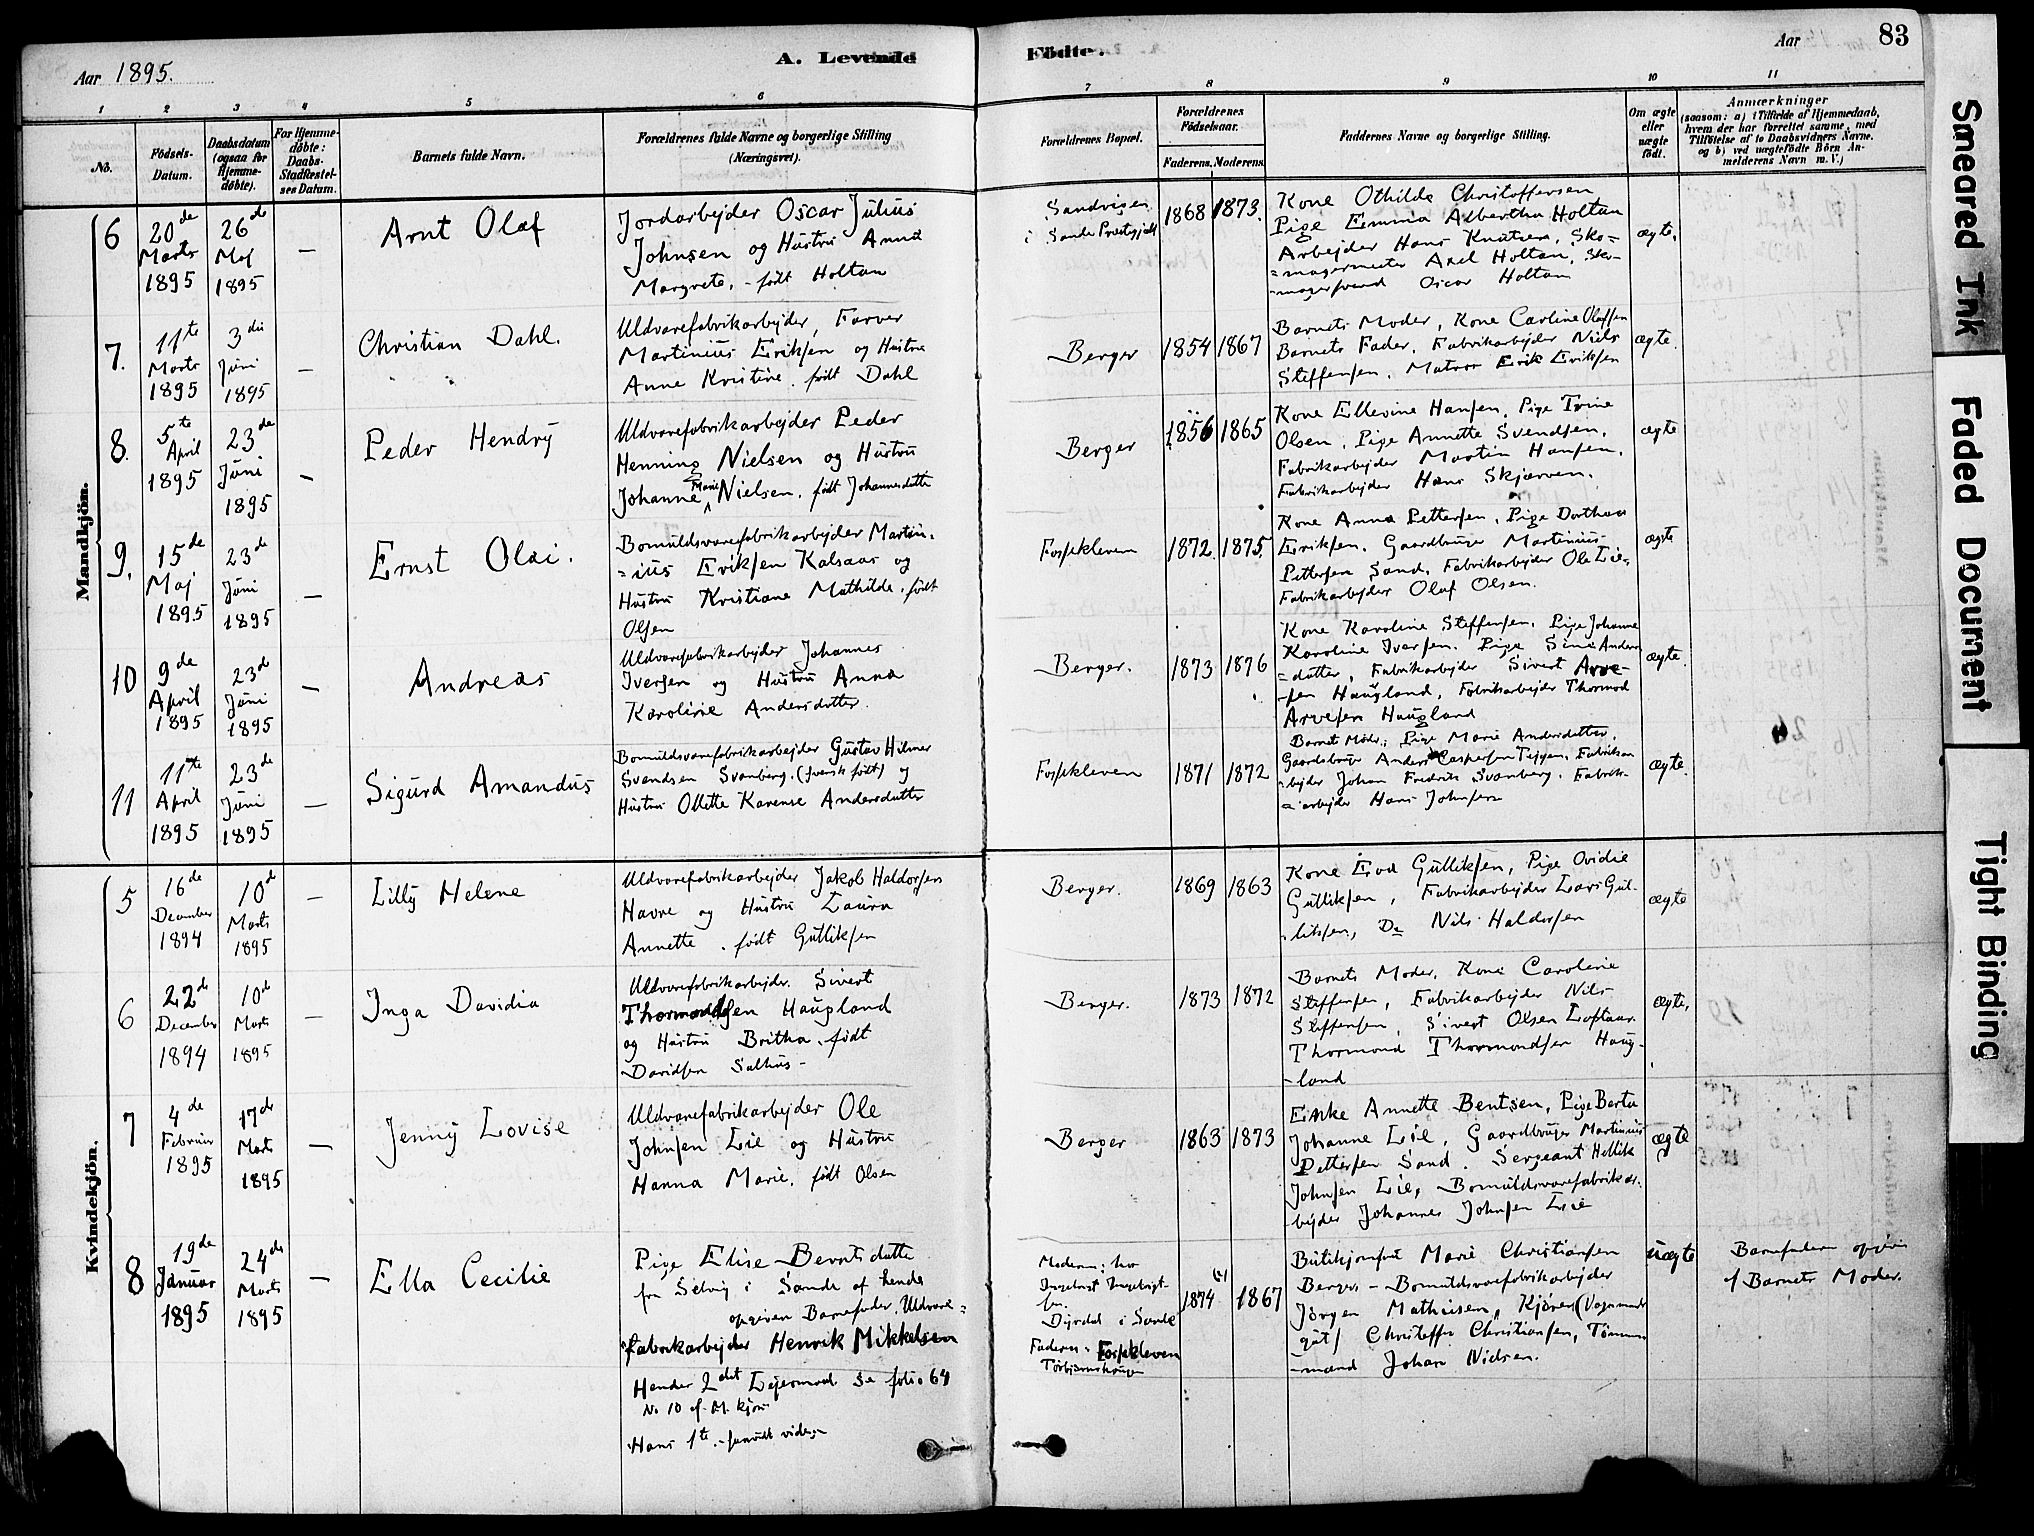 Aar 1895.
A. Levende
Fødte.
Aar
83
1
2
3
4
5
6
7
8
9
10
11
No.
Fødsels-
Datum.
Daabsdatum
(ogsaa for
Hjemme-
døbte).
For Hjemme-
døbte:
Daabs-
Stadfæstel-
ses Datum.
Barnets fulde Navn.
Forældrenes fulde Navne og borgerlige Stilling
(Næringsvei).
Forældrenes Bopæl.
Forældrenes
Fødselsaar.
Faderens.
Moderens.
Faddernes Navne og borgerlige Stilling.
Om ægte
eller
uægte
født.
Anmærkninger
(saasom: a) i Tilfælde af Hjemmedaab,
hvem der har forrettet samme, med
Tilføielse af to Daabsvidners Navne.
og b) ved uægtefødte Børn An-
melderens Navn m. V.)
Mandkjön.
6
20de
Marts
1895
26de
Maj
1895
—
Arnt Olaf
Jordarbejder Oscar Julius
Johnsen og Hustru Anna
Margrete, - født Holtan
Sandvigen
i Sande Præstegjæld
1868
1873.
Kone Othilde Christoffersen
Pige Emma Albertha Holtan
Arbejder Hans Knutsen, Sko=
=magermester Axel Holtan, Sko-
=magersvend Oscar Holtan
ægte.
7.
11te
Marts
1895
3die
Juni
1895
—
Christian Dahl.
Uldvarefabrikarbejder, Farver
Martinius Eriksen og Hustru
Anne Kristine. født Dahl
Berger
1854
1867
Barnets Moder, Kone Carline Olaffsen
Barnets Fader, Fabrikarbejder Nils
Steffensen. Matros Erik Eriksen
ægte.
8.
5te
April
1895
23de
Juni
1895
—
Peder Hendry
Uldvarefabrikarbejder Peder
Henning Nielsen og Hustru
Johanne Marie Nielsen. født Johannesdatter
Berger
1856
1865
Kone Ellevine Hansen, Pige Trine
Olsen, Pige Annette Svendsen,
Fabrikarbejder Martin Hansen,
Fabrikarbejder Hans Skjærven.
ægte
9.
15de
Maj
1895
23de
Juni
1895
—
Ernst Olai.
Bomuldsvarefabrikarbejder Martin=
=ius Eriksen Kalsaas og
Hustru Kristiane Mathilde. født
Olsen
Fossekleven
1872.
1875.
Kone Anna Pettersen, Pige Dorthea
Eriksen. Gaardbruger Martinius
Pettersen Sand, Fabrikarbejder Ole Lie,
Fabrikarbejder Olaf Olsen.
ægte
10
9de
April
1895
23de
Juni
1895
—
Andreas
Uldvarefabrikarbejder Johannes
Iversen og Hustru Anna
Karoline Andersdatter.
Berger.
1873
1876
Kone Karoline Steffensen, Pige Johanne
Karoline Iversen. Pige Sina Anders
=datter, Fabrikarbejder Sivert Arve-
-sen Haugland, Fabrikarbejder Thormod
Arvesen Haugland
ægte.
11
11te
April
1895
23de
Juni
1895
—
Sigurd Amandus
Bomuldsvarefabrikarbejder Gustav Hilmer
Svendsen Svanberg. (svensk født) og
Hustru Olette Karense Andersdatter
Fossekleven
1871
1872
Barnets Moder; Pige Marie Andersdatter,
Gaardbruger Anders Caspersen Teigen, Fabrikar
=bejder Johan Fredrik Svanberg. Fabrik-
=arbejder Hans Johnsen
ægte.
Kvindekjön.
5
16de
December
1894
10de
Marts
1895
—
Lilly Helene
Uldvarefabrikarbejder Jakob Haldorsen
Havre og Hustru Laura
Annette. født Gulliksen
Berger.
1869
1863
Kone Eva Gulliksen, Pige Ovidie
Gulliksen, Fabrikarbejder Lars Gul-
-liksen, Do Nils Haldorsen
ægte
6
22de
December
1894
10de
Marts
1895
—
Inga Davidia
Uldvarefabrikarbejder Sivert
Thormodsen Haugland
og Hustru Britha. født
Davidsen Salhus-
Berger.
1873
1872
Barnets Moder. Kone Caroline
Steffensen, Fabrikarbejder Nils
Steffensen, Sivert Olsen Loftaas.
Thormond Thormondsen Haug-
-land
ægte,
7
4de
Februar
1895
17de
Marts
1895
—
Jenny Lovise
Uldvarefabrikarbejder Ole
Johnsen Lie og Hustru
Hanna Marie, født Olsen
Berger
1863
1873
Enke Annette Bentsen, Pige Berta
Johanne Lie, Gaardbruger Martinius
Pettersen Sand. Sergeant Hellik
Johnsen Lie, Bomuldsvarefabrikar-
bejder Johannes Johnsen Lie
ægte
8
19de
Januar
1895
24de
Marts
1895
—
Ella Cecilie
Pige Elise Berntsdatter
fra Selvig i Sande af hende
opgiven Barnefader, Uldvare=
=fabrikarbejder Henrik Mikkelsen
Hendes 2det Lejermaal Se folio 64
No. 10 af M. kjøn
Hans 1te.
Moderen: hos
Ingebret Ingebrigt-
sen
Dyrdal i Sande
Faderen: Fossekleven
1874
1867
Butikjomfru Marie Christiansen
Berger. - Bomuldsvarefabrikarbejder
Jørgen Mathisen, Kjører (Vognmands
gut) Christoffer Christiansen, Tømmer
=mand Johan Nielsen.
uægte
Barnefaderen opgivet
af Barnets Moder.
Smeared Ink
Faded Document
Tight Binding